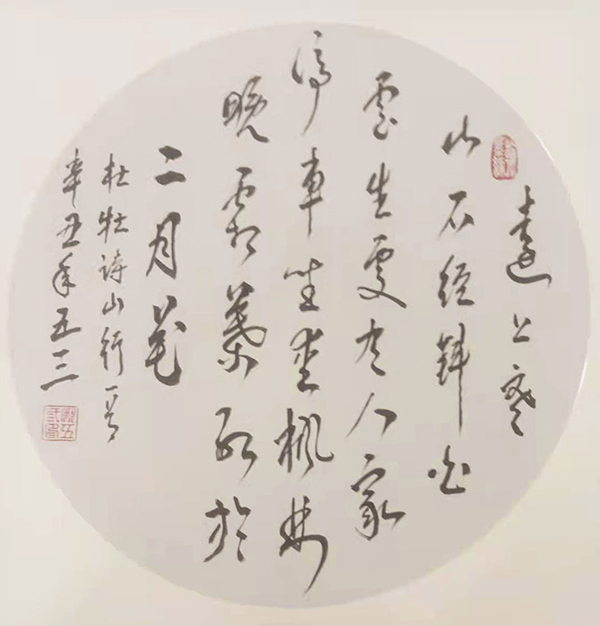 遠上寒
山石徑斜白
雲生處有人家
停車坐愛楓林
晚霜葉紅於
二月花
杜牧詩山行一首
辛丑年五三